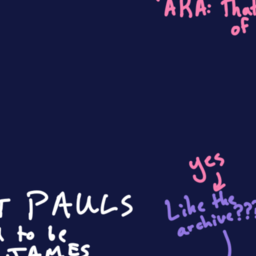 AKA: That
of
yes
Like the
archive???
T PAULS
to be
JAMES